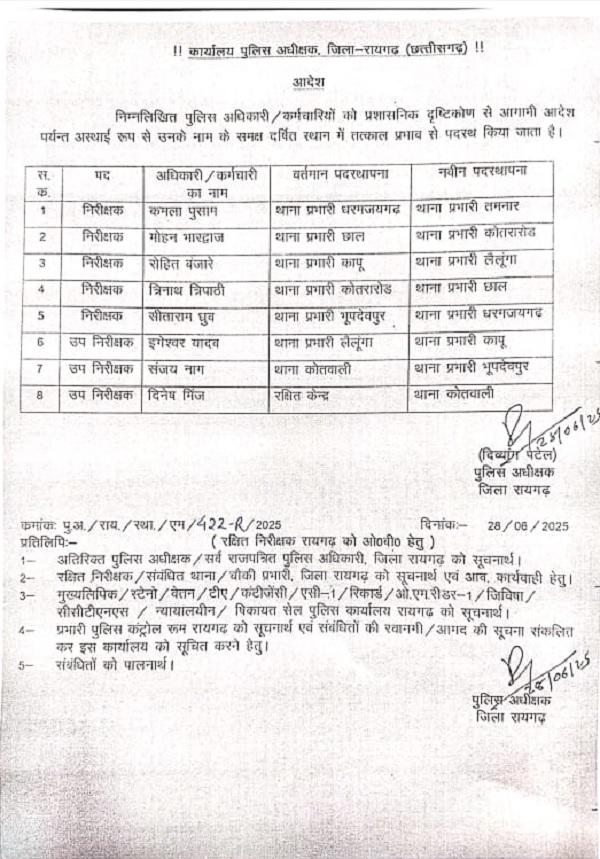 !! कार्यालय पुलिस अधीक्षक, जिला–रायगढ़ (छत्तीसगढ़) !!
आदेश
निम्नलिखित पुलिस अधिकारी/कर्मचारियों को प्रशासनिक दृष्टिकोण से आगामी आदेश
पर्यन्त अस्थाई रूप से उनके नाम के समक्ष दर्शित स्थान में तत्काल प्रभाव से पदस्थ किया जाता है।
स. क. पद अधिकारी/कर्मचारी का नाम वर्तमान पदस्थापना नवीन पदस्थापना
1 निरीक्षक कमला पुसाम थाना प्रभारी धरमजयगढ़ थाना प्रभारी तमनार
2 निरीक्षक मोहन भारद्वाज थाना प्रभारी छाल थाना प्रभारी कोतरारोड
3 निरीक्षक रोहित बंजारे थाना प्रभारी कापू थाना प्रभारी लैलूंगा
4 निरीक्षक त्रिनाथ त्रिपाठी थाना प्रभारी कोतरारोड थाना प्रभारी छाल
5 निरीक्षक सीताराम ध्रुव थाना प्रभारी भूपदेवपुर थाना प्रभारी धरमजयगढ़
6 उप निरीक्षक इगेश्वर यादव थाना प्रभारी लैलूंगा थाना प्रभारी कापू
7 उप निरीक्षक संजय नाग थाना कोतवाली थाना प्रभारी भूपदेवपुर
8 उप निरीक्षक दिनेष मिंज रक्षित केन्द्र थाना कोतवाली
28/06/25
(दिव्यांग पटेल)
पुलिस अधीक्षक
जिला रायगढ़
कमांकः पु.अ./राय./स्था./एम/422-R/2025 दिनांकः– 28/06/2025
प्रतिलिपिः– ( रक्षित निरीक्षक रायगढ़ को ओ०बी० हेतु )
1– अतिरिक्त पुलिस अधीक्षक/सर्व राजपत्रित पुलिस अधिकारी, जिला रायगढ़ को सूचनार्थ।
2– रक्षित निरीक्षक/संबंधित थाना/चौकी प्रभारी, जिला रायगढ़ को सूचनार्थ एवं आव. कार्यवाही हेतु।
3– मुख्यलिपिक/स्टेनो/वेतन/टीए/कंटीजेंसी/एसी–1/रिकार्ड/ओ.एम.रीडर–1/जिविषा/
सीसीटीएनएस / न्यायालयीन/ षिकायत सेल पुलिस कार्यालय रायगढ़ को सूचनार्थ।
4– प्रभारी पुलिस कंट्रोल रूम रायगढ़ को सूचनार्थ एवं संबंधितों की रवानगी/आमद की सूचना संकलित
कर इस कार्यालय को सूचित करने हेतु।
5– संबंधितों को पालनार्थ।
28/06/25
पुलिस अधीक्षक
जिला रायगढ़